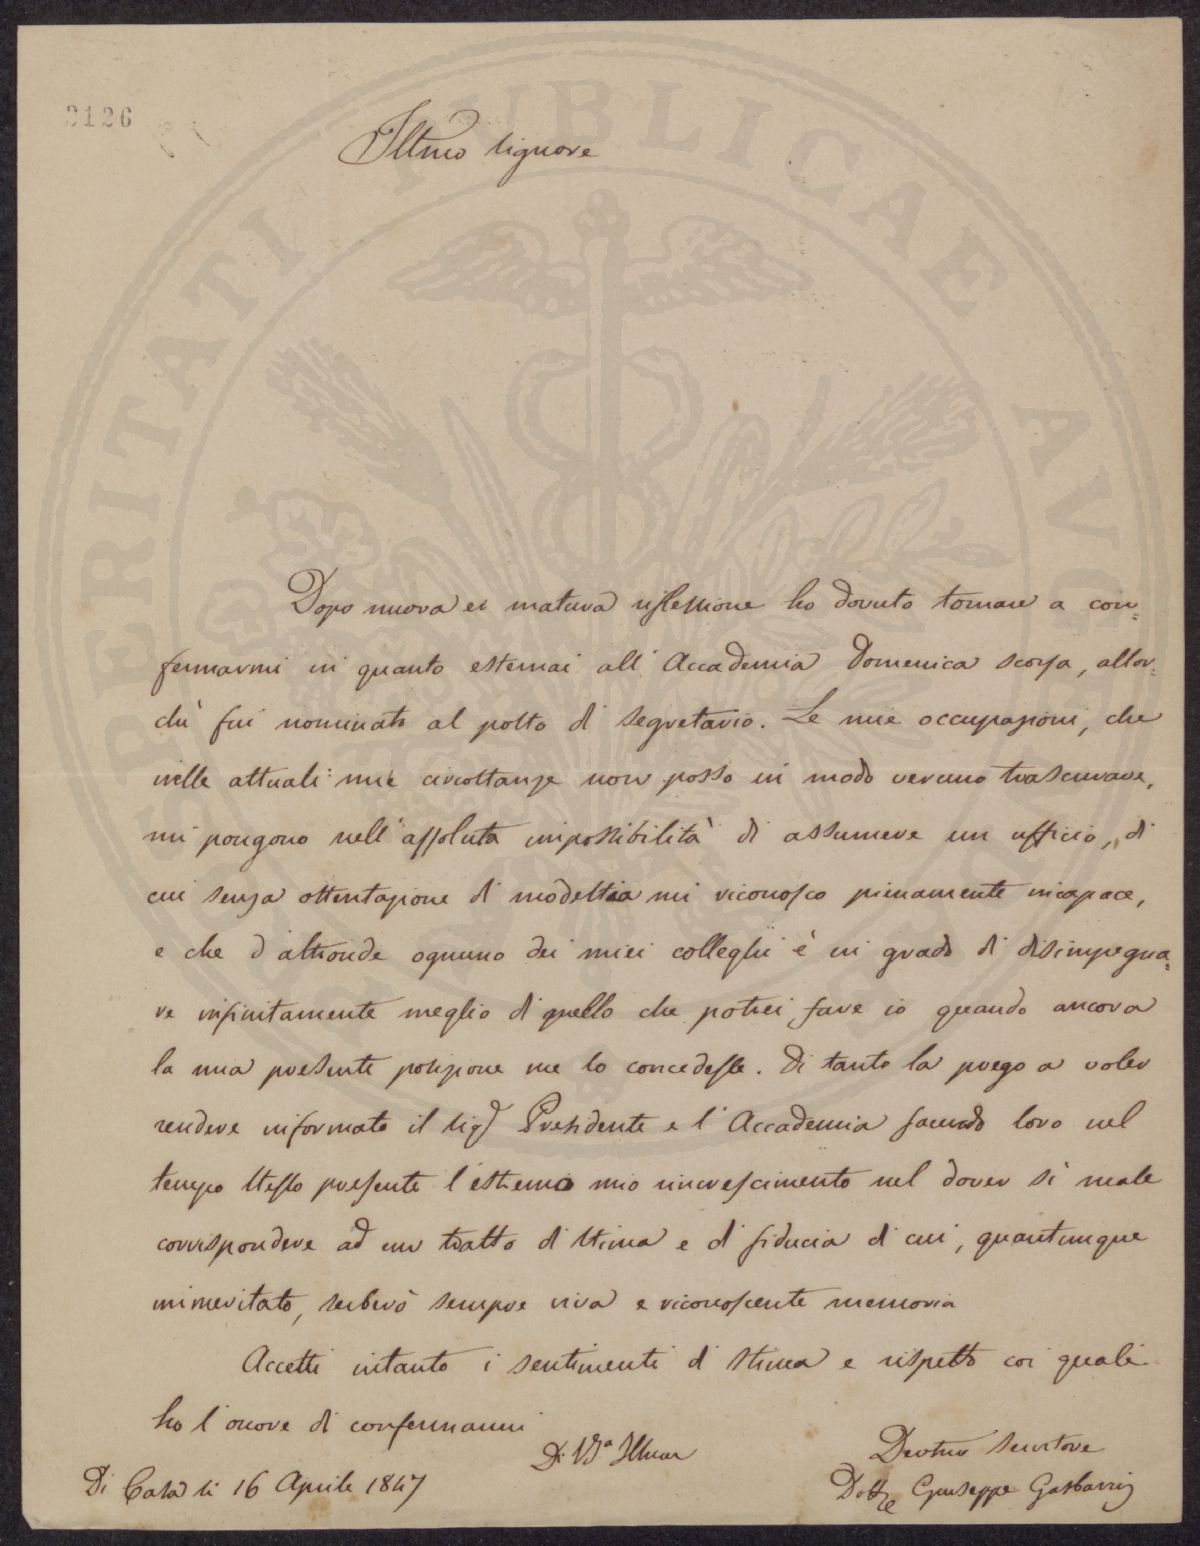 2126
Illmo Signore
Dopo nuova et matura riflessione ho dovuto tornare a con=
fermarmi in quanto esternai all'Accademia Domenica scorsa, allor=
chè fui nominato al posto di Segretario. Le mie occupazioni, che
nelle attuali mie circostanze non posso in modo veruno trascurare,
mi pongono nell'assoluta impossibilità di assumere un ufficio, di
cui senza ostentazione di modestia mi riconosco pienamente incapace,
e che d'altronde ognuno dei miei colleghi è in grado di disimpegna=
re infinitamente meglio di quello che potrei fare io quando ancora
la mia presente posizione me lo concedesse. Di tanto la prego a voler
rendere informato il Sigr Presidente e l'Accademia facendo loro nel
tempo stesso presente l'estremo mio rincrescimento nel dover sì male
corrispondere ad un tratto di stima e di fiducia di cui, quantunque
immeritato, serberò sempre viva e riconoscente memoria
Accetti intanto i sentimenti di stima e rispetto coi quali
ho l'onore di confermarmi
Di V.S.a Illma
Devotmo Servitore
Di Casa li 16 Aprile 1847
Dotte Giuseppe Gasbarrij
PROSPERITATI PUBLICAE AUG